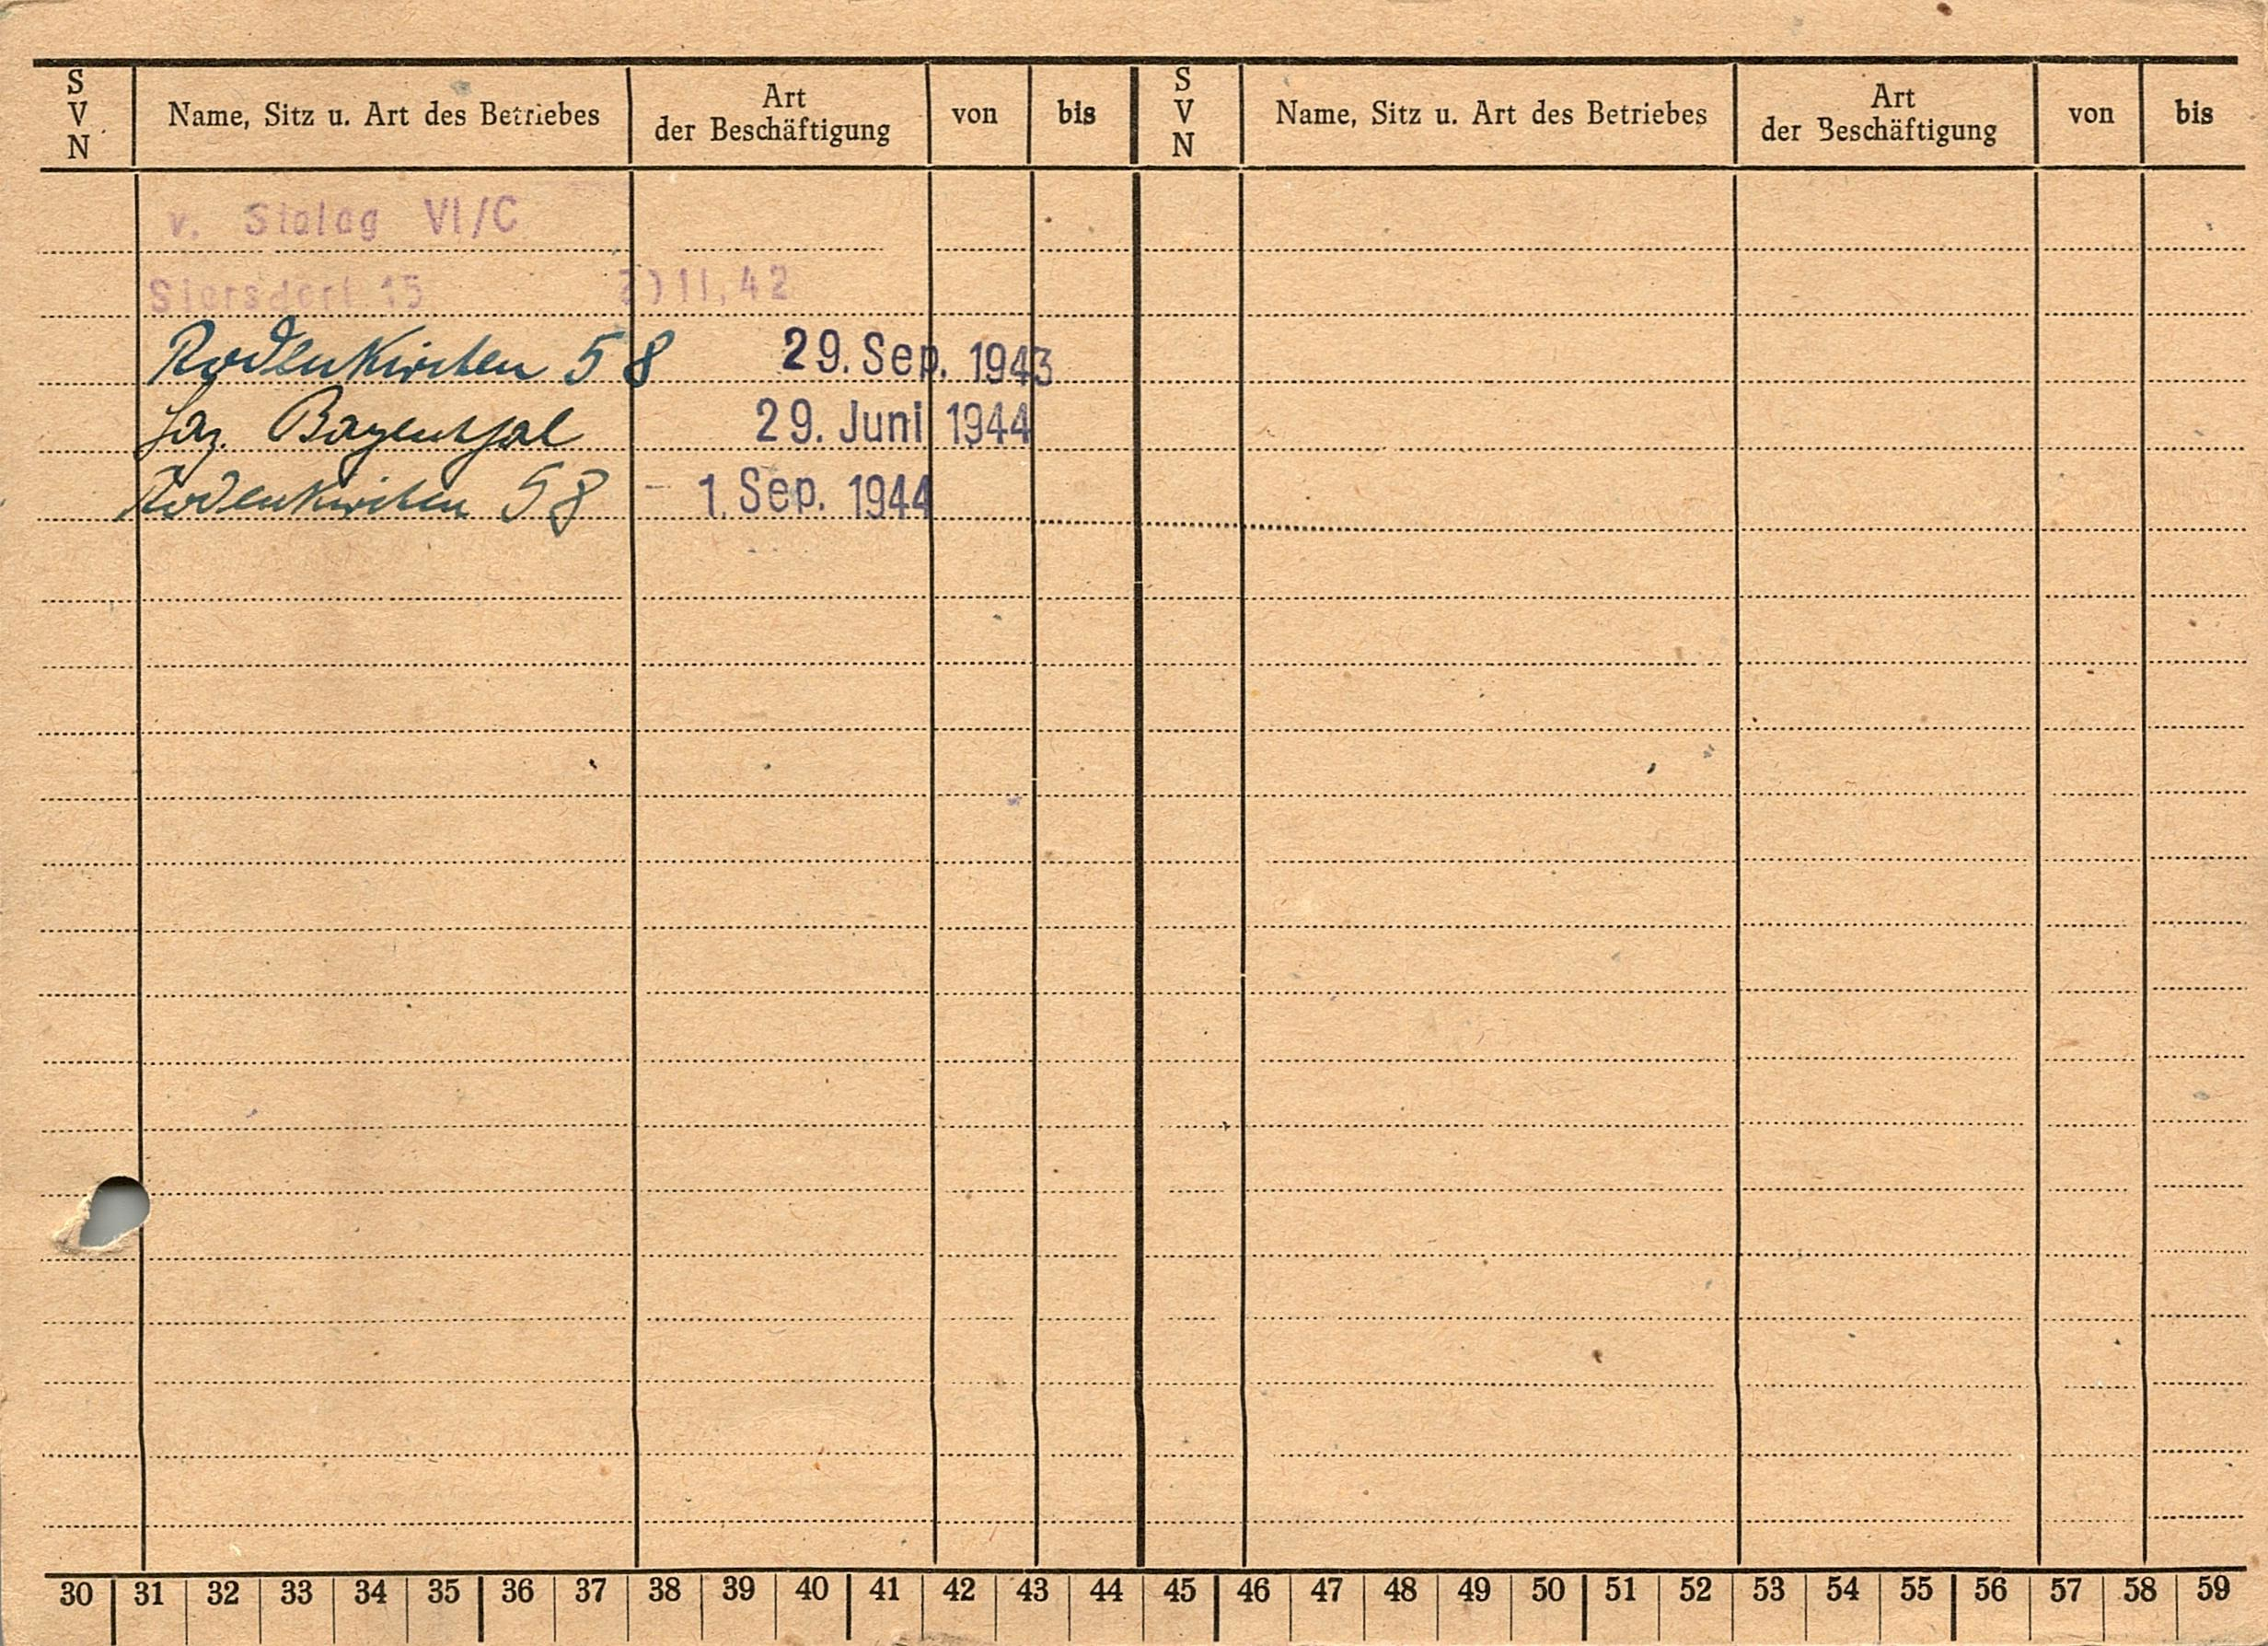 S V N Name, Sitz u. Art des Betriebes Art der Beschäftigung von bis S V N Name, Sitz u. Art des Betriebes Art der Beschäftigung von bis
v. Stalag VI/C
Siersdorf 15 11, 42
Rodenkirchen 58 29. Sep. 1943
Laz. Bayenthal 29. Juni 1944
Rodenkirchen 58 - 1. Sep. 1944
30 31 32 33 34 35 36 37 38 39 40 41 42 43 44 45 46 47 48 49 50 51 52 53 54 55 56 57 58 59